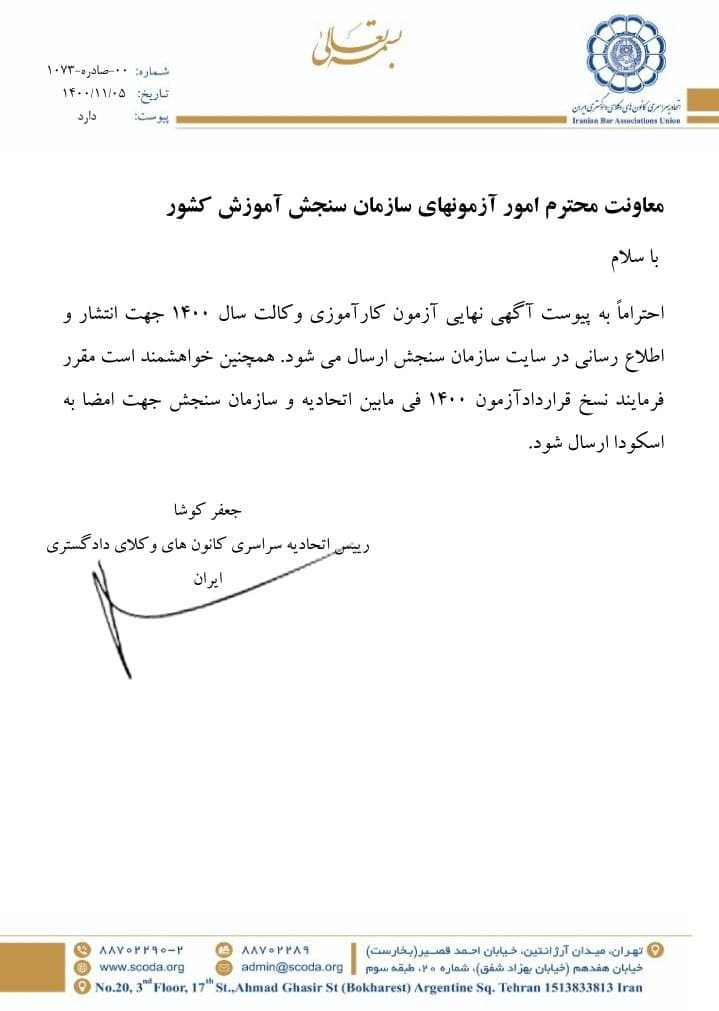 بسمه تعالی
اتحادیه سراسری کانون‌های وکلای دادگستری ایران
Iranian Bar Associations Union
شماره: ۰۰-صادره-۱۰۷۳
تاریخ: ۱۴۰۰/۱۱/۰۵
پیوست: دارد
معاونت محترم امور آزمونهای سازمان سنجش آموزش کشور
با سلام
احتراماً به پیوست آگهی نهایی آزمون کارآموزی وکالت سال ۱۴۰۰ جهت انتشار و
اطلاع رسانی در سایت سازمان سنجش ارسال می شود. همچنین خواهشمند است مقرر
فرمایند نسخ قراردادآزمون ۱۴۰۰ فی مابین اتحادیه و سازمان سنجش جهت امضا به
اسکودا ارسال شود.
جعفر کوشا
رییس اتحادیه سراسری کانون های وکلای دادگستری
ایران
تهران، میدان آرژانتین، خیابان احمد قصیر(بخارست)
خیابان هفدهم (خیابان بهزاد شفق)، شماره ۲۰، طبقه سوم
۸۸۷۰۲۲۸۹
admin@scoda.org
۸۸۷۰۲۲۹۰-۲
www.scoda.org
No.20, 3nd Floor, 17th St.,Ahmad Ghasir St (Bokharest) Argentine Sq. Tehran 1513833813 Iran